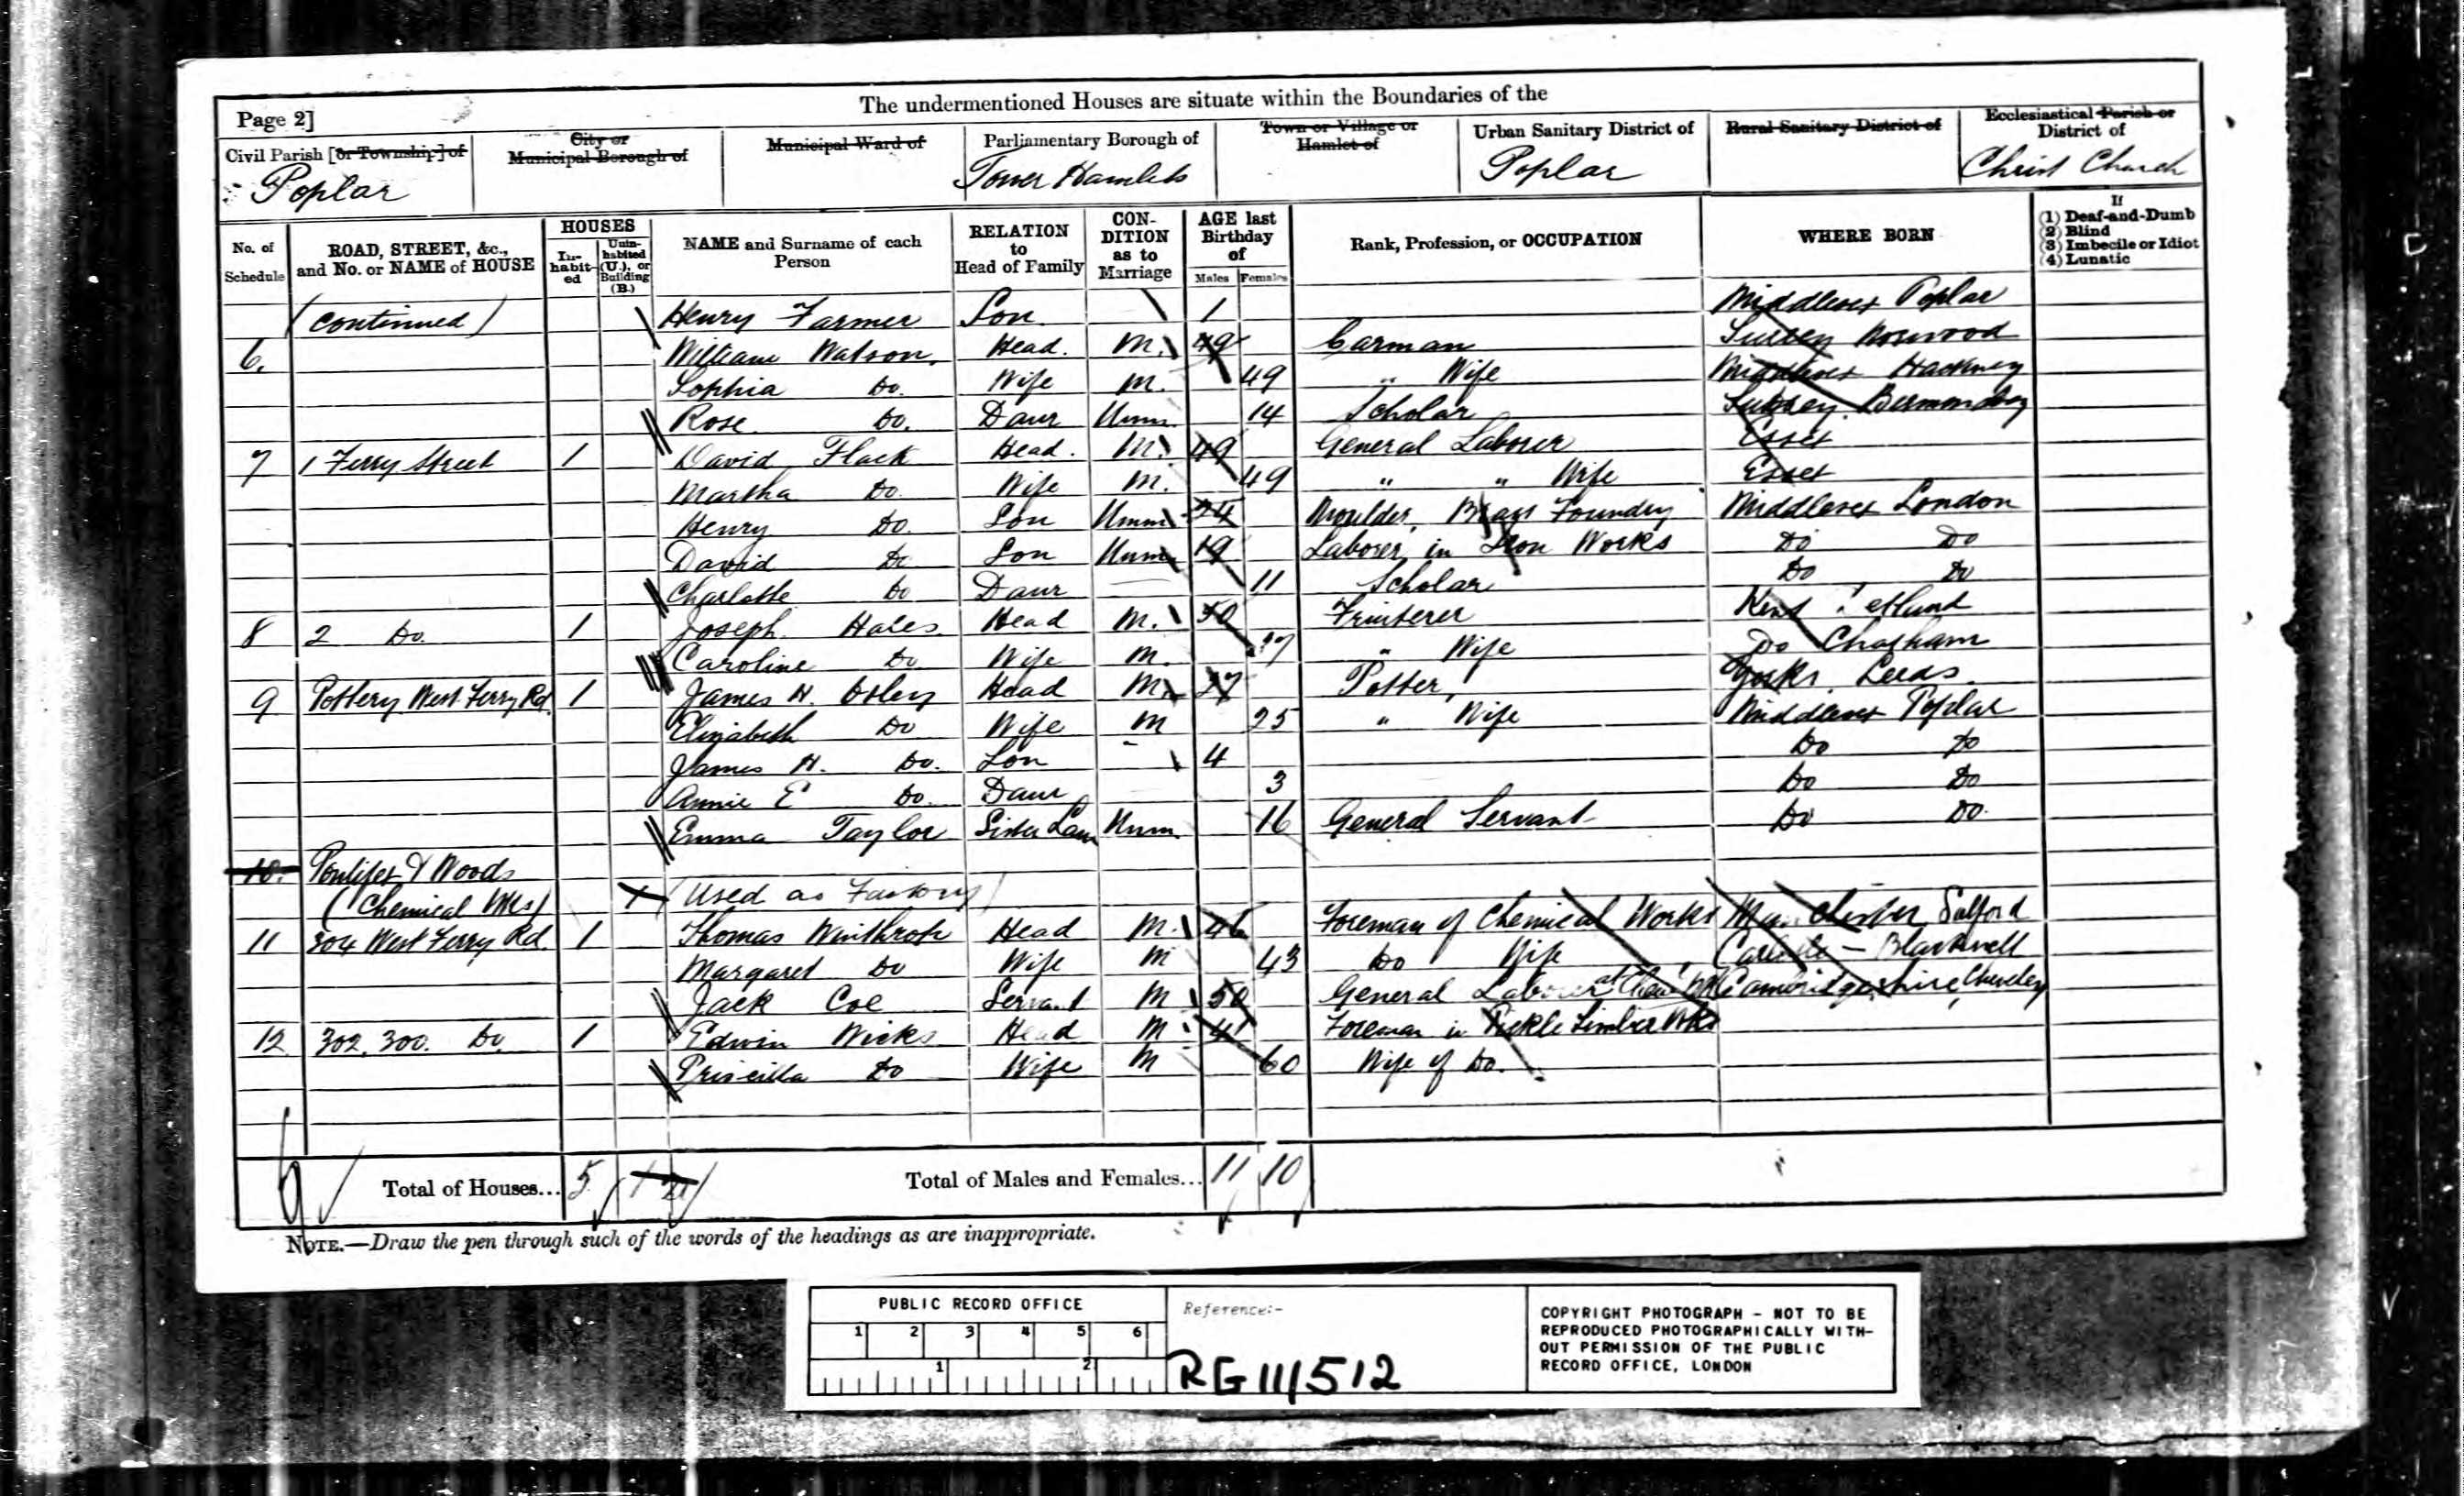 The undermentioned Houses are situate within the Boundaries of the
Page 2]
Civil Parish [or Township] of
Poplar
City or
Municipal Borough of
Municipal Ward of
Parliamentary Borough of
Tower Hamlets
Town or Village or
Hamlet of
Urban Sanitary District of
Poplar
Rural Sanitary District of
Ecclesiastical Parish or
District of
Christ Church
No. of
Schedule
ROAD, STREET, &c.,
and No. or NAME of HOUSE
HOUSES
In-
habit-
ed
Unin-
habited
(U.), or
Building
(B.)
NAME and Surname of each
Person
RELATION
to
Head of Family
CON-
DITION
as to
Marriage
AGE last
Birthday
of
Males Females
Rank, Profession, or OCCUPATION
WHERE BORN
If
(1) Deaf-and-Dumb
(2) Blind
(3) Imbecile or Idiot
(4) Lunatic
(continued) Henry Farmer Son 1 Middlesex Poplar
6. William Watson Head. M. 49 Carman Surrey Norwood
Sophia Do. Wife M. 49 " Wife Middlesex Hackney
Rose Do. Daur Unm. 14 Scholar Surrey. Bermondsey
7 1 Ferry Street 1 David Flack Head. M. 49 General Laborer Essex
Martha Do. Wife M. 49 " " Wife Essex
Henry Do. Son Unm 24 Moulder, Brass Foundry Middlesex London
David Do Son Unm 19 Laborer in Iron Works Do Do
Charlotte Do Daur 11 Scholar Do Do
8 2 Do. 1 Joseph Hales Head M. 30 Fruiterer Kent
Caroline Do Wife M. " Wife Do Chatham
9 Pottery West Ferry Rd. 1 James H. Head M. 27 Potter, Yorks. Leeds.
Elizabeth Do Wife M 25 " Wife Middlesex Poplar
James H. Do. Son 4 Do Do
Annie E Do. Daur 3 Do Do
Emma Taylor Sister Law Unm 16 General Servant Do Do.
10. Pontifex & Woods
(Chemical Wks) (Used as Factory)
11 304 West Ferry Rd. 1 Thomas Winthrop Head M. 46 Foreman of Chemical Works Manchester Salford
Margaret Do Wife M 43 Do Wife Carlisle – Blackwell
Jack Coe Servant M 50 General Labourer at Cambridgeshire, Cheveley
12 302, 300. Do. 1 Edwin Wicks Head M. 41 Foreman in Timber Wks
Priscilla Do Wife M 60 Wife of Do.
Total of Houses... 5 Total of Males and Females... 11 10
NOTE.—Draw the pen through such of the words of the headings as are inappropriate.
PUBLIC RECORD OFFICE
1 2 3 4 5 6
1 2
Reference:-
RG 11/512
COPYRIGHT PHOTOGRAPH - NOT TO BE
REPRODUCED PHOTOGRAPHICALLY WITH-
OUT PERMISSION OF THE PUBLIC
RECORD OFFICE, LONDON